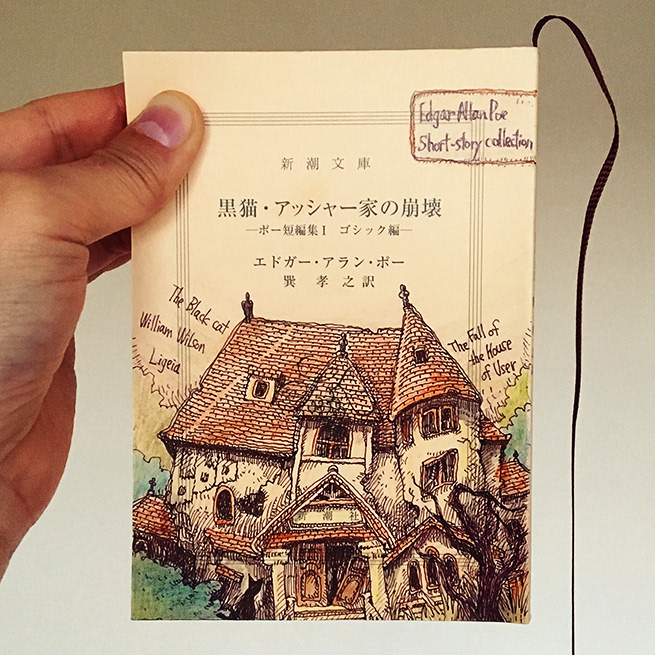 Edgar Allan Poe
Short-story collection
新潮文庫
黒猫・アッシャー家の崩壊
―ポー短編集Ⅰ ゴシック編―
エドガー・アラン・ポー
巽 孝之訳
The Black cat
William Wilson
Ligeia
The Fall of
the House
of User
新潮社